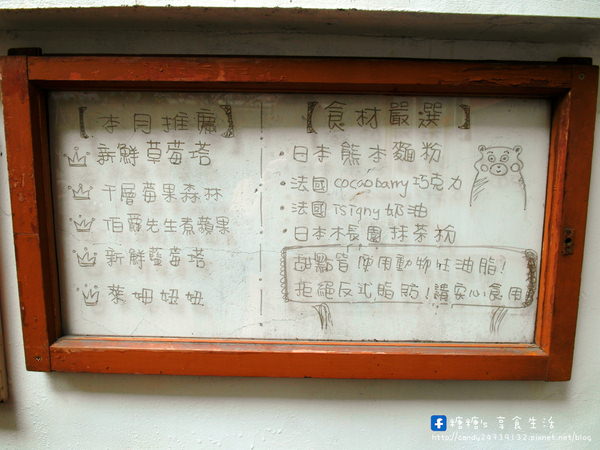 【本月推薦】
新鮮草莓塔
千層莓果森林
伯爵先生煮蘋果
新鮮藍莓塔
萊姆妞妞
【食材嚴選】
・日本熊本麵粉
・法國cacaobarry巧克力
・法國Isigny奶油
・日本木長園抹茶粉
甜點皆使用動物性油脂!
拒絕反式脂肪!請安心食用
糖糖's 享食生活
http://candy24734132.pixnet.net/blog